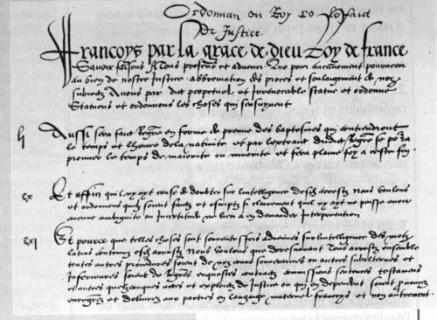 Ordonnan du Roy
De Justice.
Francoys par la grace de dieu Roy de france
Savoir faisons a Tous presens et advenir Que pour aucunement pourveoir
au bien de nostre Justice abbreviation des proces et soulagement de noz
subiectz Avons par edit perpetuel et irrevocable statue et ordonne
Statuons et ordonnons les choses qui sensuyvent
li Aussi sera faict Regre en forme de preuve des baptesmes qui contiendront
le temps et lheure de la nativite et par lextraict dudict Regre se pora
prouver le temps de maiorite ou minorite et fera plaine foy a ceste fin
cx Et affin quil ny ayt cause de doubter sur lintelligence desdz arrestz Nous voulons
et ordonnons quilz soient faictz et escriptz si clairement quil ny ayt ne puisse avoir
aucune ambiguite ou incertitude ne lieu a en demander interpretation
cxi Et pource que telles choses sont souventesfois advenues sur lintelligence des motz
latins contenuz esdz arrestz Nous voulons que doresnavant Tous arrestz ensemble
toutes autres procedures soient de noz cours souveraines ou autres subalternes et
inferieures soient de Regres enquestes contractz commissions sentences testamens
et autres quelzconques actes et exploictz de Justice ou qui en dependent soient prononcez
enregrez et delivrez aux parties en langage maternel francoys et non autrement.